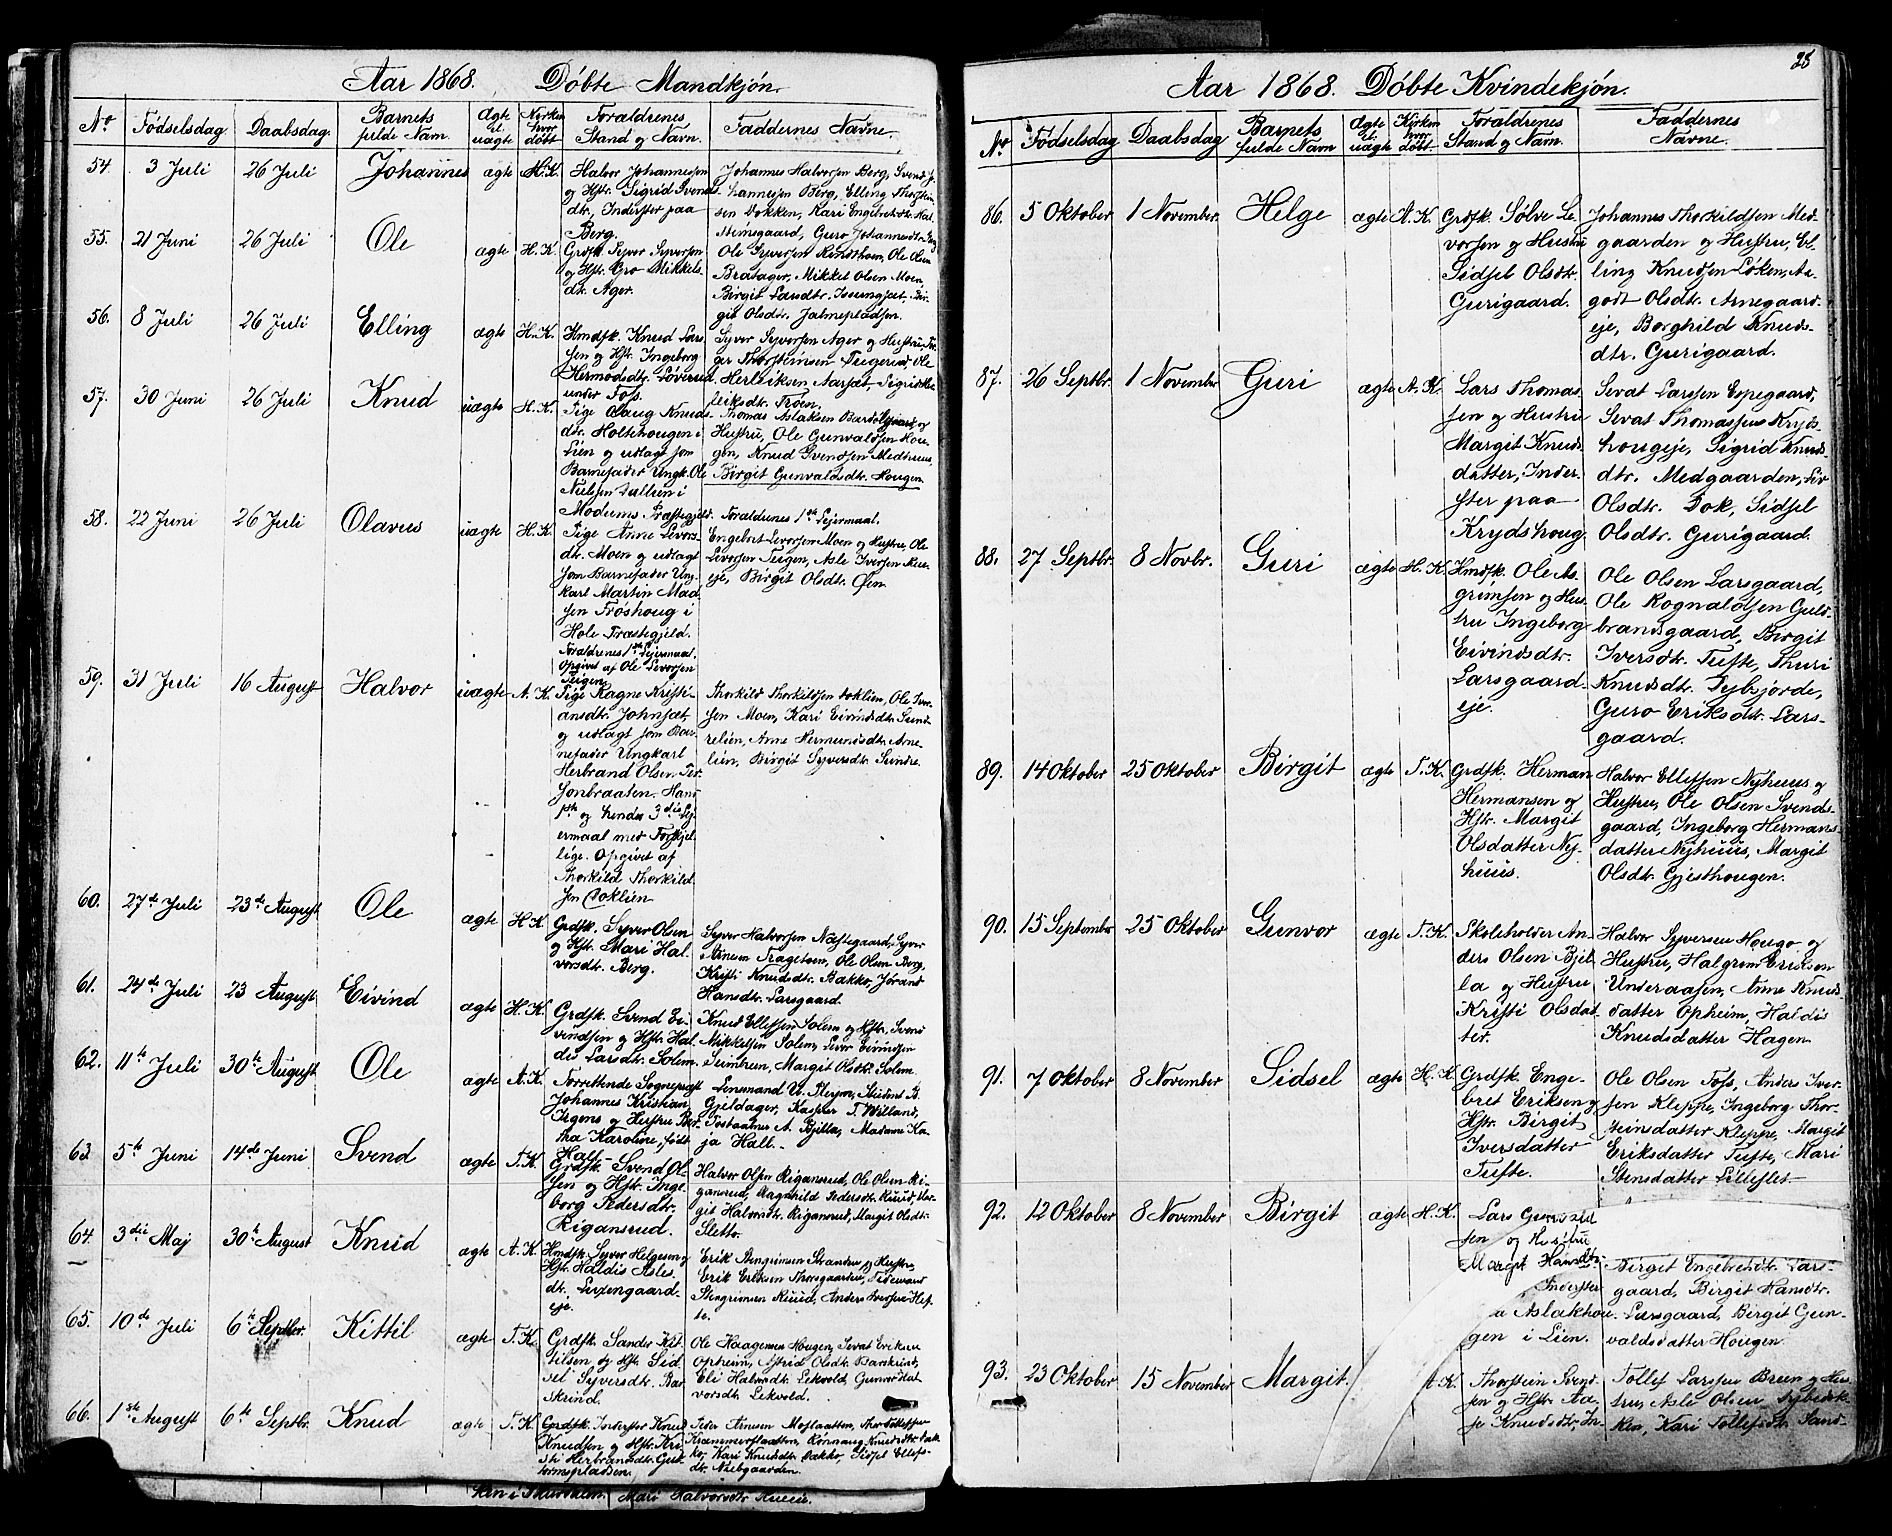 Aar 1868. Døbte Mandkjøn.
No Fødselsdag. Daabsdag. Barnets fulde Navn. Ægte el. uægte Kirken hvor døbt Forældrenes Stand og Navn. Faddernes Navne.
54. 3 Juli 26 Juli Johannes ægte H.K.
Halvor Johannessen
og Hstr. Sigrid Svends-
dtr., Inderster paa
Berg.
Johannes Halvorsen Berg, Svend Jo-
hannesen Berg, Elling Thorstein-
sen Dokken, Kari Engebretsdtr.
Guro Johannesdtr.
55. 21 Juni 26 Juli Ole ægte H.K.
Grdsk. Syver Syversen
og Hstr. Gro Mikkels-
dtr. Ager.
Ole Syversen Rendthom, Ole Olsen
Bratager, Mikkel Olsen Moen,
Birgit Larsdtr.
git Olsdtr.
56. 8 Juli 26 Juli Elling ægte H.K.
Hmdsk. Knud Lar-
sen og Hstr. Ingeborg
Hermodsdtr. Løverud
under Fos.
Syver Syversen Ager og Hustru,
Thorsteinsen Teigerud, Ole
Herleiksen Aarset, Sigrid
leiksdtr. Troen.
57. 30 Juni 26 Juli Knud uægte H.K.
Pige Olaug Knuds-
dtr. Holtehougen i
Lien og udlagt som
Barnefader Ungk. Ole
Nielsen
Modums Præstegjeld.
Thomas Aslaksen Bardølgaard og
Hustru, Ole Gunvaldsen Hou-
gen, Knud Svendsen Medhuus,
Birgit Gunvaldsdtr. Hougen.
58. 22 Juni 26 Juli Olavus uægte H.K.
Pige Anne Levors-
dtr. Moen og udlagt
som Barnefader Un-
karl Martin Mad-
sen Frøshoug i
Hole Præstegjeld.
Forældrenes 1ste Lejermaal.
Opgivet af Ole Levorsen
Teigen.
Forældrenes 1ste Lejermaal.
Engebret Levorsen Moen og Hustru, Ole
Levorsen Teigen, Asle Iversen
eje, Birgit Olsdtr. Øen.
59. 31 Juli 16 August Halvor uægte A.K.
Pige Ragne Kristi-
ansdtr. Johnset
og udlagt som Bar-
nefader Ungkarl
Herbrand Olsen
sonbraaten. Hans
1ste og hendes 3die Lej-
ermaal med Forskjel-
lige. Opgivet af
Thorkild Thorkild-
sen Doklien.
Thorkild Thorkildsen Doklien, Ole Iver-
sen Moen, Kari Eivindsdtr. Sund-
relien, Anne Hermundsdtr. Arne-
lien, Birgit Syversdtr. Sundre.
60. 27de Juli 23de August Ole ægte H.K.
Grdsk. Syver Olsen
og Hstr. Mari Hal
vorsdtr. Berg.
Syver Halvorsen Næstegaard, Syver
Arnesen Trageton, Ole Olsen Berg,
Kristi Knudsdtr. Bakko, Jørand
Hansdtr. Larsgaard.
61. 24de Juli 23 August Eivind ægte H.K.
Grdsk. Svend Ei-
vindsen og Hstr. Hal
dis Larsdtr. Solem.
Knud Ellefsen Solem og Hstr., Svend
Mikkelsen Solem, Levor Eivindsen
Seimhein, Margit Olsdtr. Solem.
62. 11te Juli 30te August Ole ægte A.K.
Forrettende Sogneprest
Johannes Kristian
Irgens og Hustru Ber-
tha Karoline, født
Hall.
Lensmand U. Flerym, Student B.
Gjeldager, Kasper T. Willand,
Postaabner A. Bjella, Madame Ka-
ja Hall.
63. 5te Juni 14de Juni Svend ægte T.K.
Grdsk. Svend Ol-
sen og Hstr. Inge
borg Pedersdtr.
Rigansrud.
Halvor Olsen Rigansrud, Ole Olsen Ri-
gansrud, Ragnhild Pedersdtr. Ruud, Mar-
git Halvorsdtr. Rigansrud, Margit Olsdtr.
Sletto.
64. 3die Maj 30te August Knud ægte A.K.
Hmdsk. Syver Helgesen og
Hstr. Haldis Asles
dtr. Levengaard-
eje.
Erik Stengrimsen Strandru og Hustru,
Erik Eriksen Thorsgaarden, Tidemand
Stengrimsen Ruud, Anders Iversen Hef-
te.
65. 10de Juli 6te Septbr. Kittil ægte T.K.
Grdsk. Sander Kit
tilsen og Hstr. Sid
sel Syversdtr. Bar
skrind.
Ole Haagensen Hougen, Sevat Eriksen
Opheim, Astrid Olsdtr. Barskrind,
Eli Halvordtr. Lekvold, Gunvor Hal
vorsdtr. Lekvold.
66. 1ste August 6te Septbr. Knud ægte T.K.
Grdsk. Inderster Knud
Knudsen og Hstr. Kri
sti Herbrandsdtr.
tormspladsen.
Peder Arnesen Moplaatten, Thor Tollefsen
Krammerplaatten, Rønnaug Knudsdtr. Bak
ko, Kari Knudsdtr. Bakko, Sidsel Ellefs-
dtr. Nubgaarden.
Mari Halvorsdtr.
28
Aar 1868. Døbte Kvindekjøn.
No. Fødselsdag Daabsdag Barnets fulde Navn Ægte el. uægte Kirken hvor døbt. Forældrenes Stand og Navn. Faddernes Navne.
86. 5 Oktober 1 November. Helge ægte A.K.
Grdsk. Sølve Le-
vorsen og Hustru
Sidsel Olsdtr.
Gurigaard.
Johannes Thorkildsen Med-
gaarden og Hustru, El-
ling Knudsen Løken, Aa-
got Olsdtr. Arnegaard-
eje, Borghild Knuds-
dtr. Gurigaard.
87. 26 Septbr. 1 November Guri ægte A.K.
Lars Thomas
sen og Hustru
Margit Knuds-
datter, Inder-
ster paa
Krydshoug
Sevat Larssen Espegaard,
Sevat Thomassen Kryds-
hougeje, Sigrid Knuds-
dtr. Medgaarden, Liv
Olsdtr. Dok, Sidsel
Olsdtr. Gurigaard.
88. 27 Septbr. 8 Novbr. Guri ægte H.K.
Hmdsk. Ole As-
grimsen og Hus-
tru Ingeborg
Eivindsdtr.
Larsgaard-
eje.
Ole Olsen Larsgaard,
Ole Rognaldsen Guld-
brandsgaard, Birgit
Iversdtr. Tufte, Thuri
Knudsdtr. Sybsjorde,
Guro Eriksdtr. Lars-
gaard.
89. 14 Oktober 25 Oktober Birgit ægte T.K.
Grdsk. Herman
Hermansen og
Hstr. Margit
Olsdatter Ny-
huus.
Halvor Ellefsen Nyhuus og
Hustru, Ole Olsen Svends-
gaard, Ingeborg Hermans-
datter Nyhuus, Margit
Olsdtr. Gjesthougen.
90. 15 September 25 Oktober Gunvor ægte T.K.
Skoleholder An-
ders Olsen Bjel-
la og Hustru
Kristi Olsdat-
ter.
Halvor Syversen Hougo og
Hustru, Halgrim Eriksen
Underaasen, Anne Knuds-
datter Opheim, Haldis
Knudsdatter Hagen.
91. 7 Oktober 8 November Sidsel ægte H.K.
Grdsk. Enge-
bret Eriksen og
Hstr. Birgit
Iversdatter
Tufte.
Ole Olsen Foss, Anders Iver-
sen Kleppe, Ingeborg Thor-
steinsdatter Kleppe, Margit
Eriksdatter Tufte, Mari
Stensdatter Lilleslet.
92. 12 Oktober 8 November Birgit ægte H.K.
Lars Gunvald
sen og Hustru
Margit Hansdtr.
Inderster
a Aslakhou
gen i Lien.
Birgit Engebretsdtr. Lars-
gaard, Birgit Hansdtr.
Larsgaard, Birgit Gun-
valdsdatter Hougen.
93. 23 Oktober 15 November Margit. A.K.
Thorstein Svend
sen og Hstr. Aa-
se Knudsdtr, In-
Tollef Larssen Breen og Hus
tru, Asle Olsen
ken, Kari Tollefsdtr. Sand-